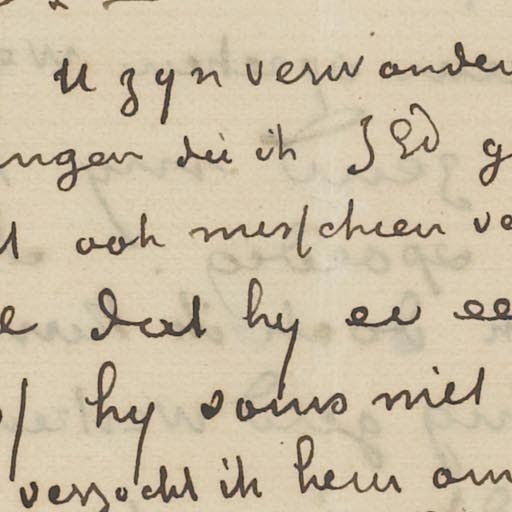 U zyn verwonder
ingen die ik ZEd g
ook messchien vo
e dat hy er ee
of hy soms niet
verzocht ik hem om